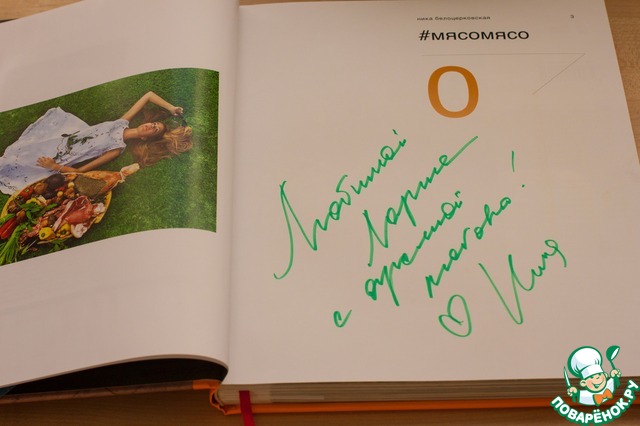 ника белоцерковская 3
#мясомясо
О
Любимой
Ларше
с огромной
любовью!
Ника
ПОВАРЁНОК.РУ